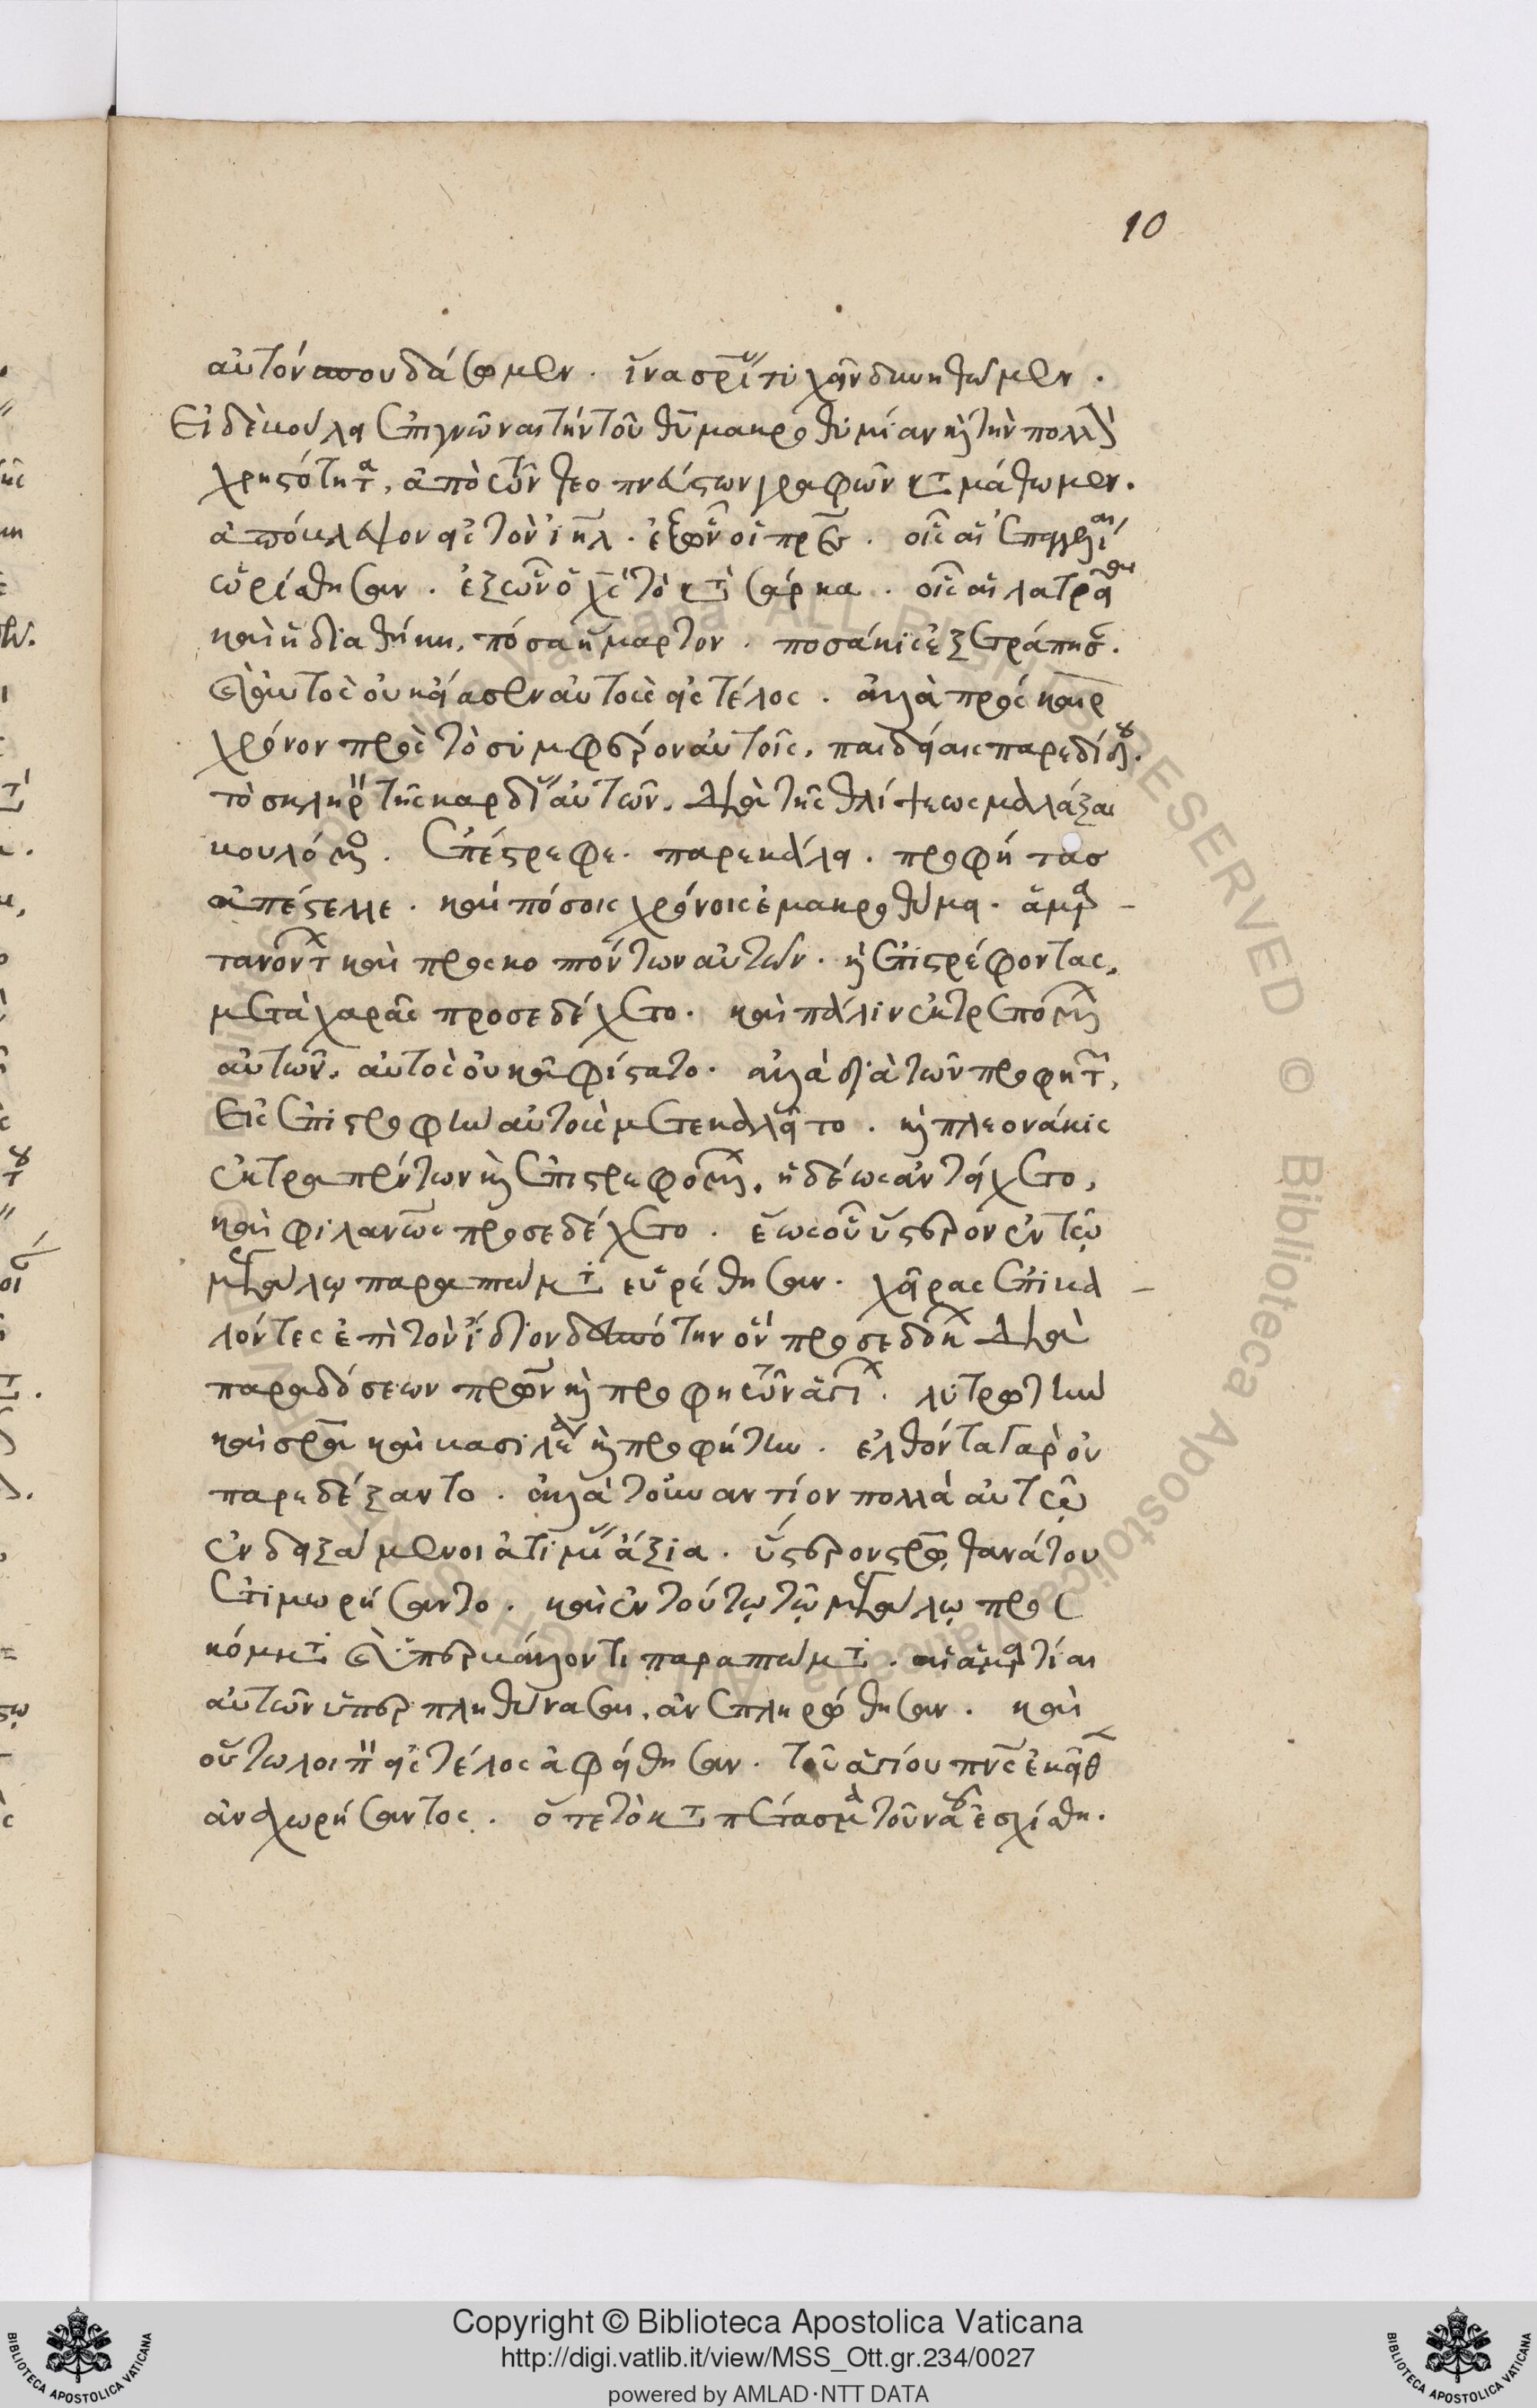 10
αὐτόν σπουδάσωμεν. ἵνα σρίας τυχεῖν δυνηθῶμεν.
Εἰ δὲ βούλει ἐπιγνῶναι τὴν τοῦ θῦ μακροθυμίαν κ τὴν πολλὴν
χρηστότητα, ἀπὸ τῶν θεοπνεύστων γραφῶν καταμάθωμεν.
ἀπόβλεψον εἰς τὸν ἰηλ. ἐξ ὧν οἱ πρες. οἷς αἱ ἐπαγγελίαι
ὡρίσθησαν. ἐξ ὧν ὁ χς τὸ κατὰ σάρκα. οἷς αἱ λατρεῖαι
καὶ ἡ διαθήκη, πόσα ἥμαρτον. ποσάκις ἐξετράπησαν.
καὶ αὐτὸς οὐκ εἴασεν αὐτοὺς εἰς τέλος. ἀλλὰ πρὸς καιρ
χρόνον πρὸς τὸ συμφέρον αὐτοῖς, παιδείαις παρεδίδου.
τὸ σκληρὸν τῆς καρδίας αὐτῶν, διὰ τῆς θλίψεως μαλάξαι
βουλόμενος. ἐπέστρεφε. παρεκάλει. προφήτας
ἀπέστελλε. καὶ πόσοις χρόνοις ἐμακροθύμει. ἁμαρ-
τανόντων καὶ προσκοπτόντων αὐτῶν. κ ἐπιστρέφοντας,
μετὰ χαρᾶς προσεδέχετο. καὶ πάλιν ἐκτρεπομένων
αὐτῶν, αὐτὸς οὐκ ἀφίστατο. ἀλλὰ διὰ τῶν προφητῶν,
εἰς ἐπιστροφὴν αὐτοὺς μετεκαλεῖτο. κ πλεονάκις
ἐκτραπέντων κ ἐπιστρεφομένων, ἡδέως ἀντείχετο,
καὶ φιλανως προσεδέχετο. ἕως οὗ ὕστερον ἐν τῷ
μεγάλῳ παραπτώματι εὑρέθησαν. χεῖρας ἐπιβαλ-
λόντες ἐπὶ τὸν ἴδιον δεσπότην ὃν προσεδόκων διὰ
παραδόσεων πρων κ προφητῶν ἁγίων. λυτρωτὴν
καὶ σρα καὶ βασιλέα κ προφήτην. ἐλθόντα γὰρ οὐ
παρεδέξαντο. ἀλλὰ τοὐναντίον πολλὰ αὐτῷ
ἐνδειξάμενοι ἀτιμίας ἄξια. ὕστερον στρῷ θανάτου
ἐτιμωρήσαντο. καὶ ἐν τούτῳ τῷ μεγάλῳ προσ
κόμματι καὶ ὑπερβάλλοντι παραπτώματι. αἱ ἁμαρτίαι
αὐτῶν ὑπερπληθύνασαι, ἀνεπληρώθησαν. καὶ
οὕτω λοιπὸν εἰς τέλος ἀφείθησαν. τοῦ ἁγίου πνς ἐκεῖθεν
ἀναχωρήσαντος. ὅτε τὸ καταπέτασμα τοῦ ναοῦ ἐσχίσθη.
Copyright © Biblioteca Apostolica Vaticana
http://digi.vatlib.it/view/MSS_Ott.gr.234/0027
powered by AMLAD·NTT DATA